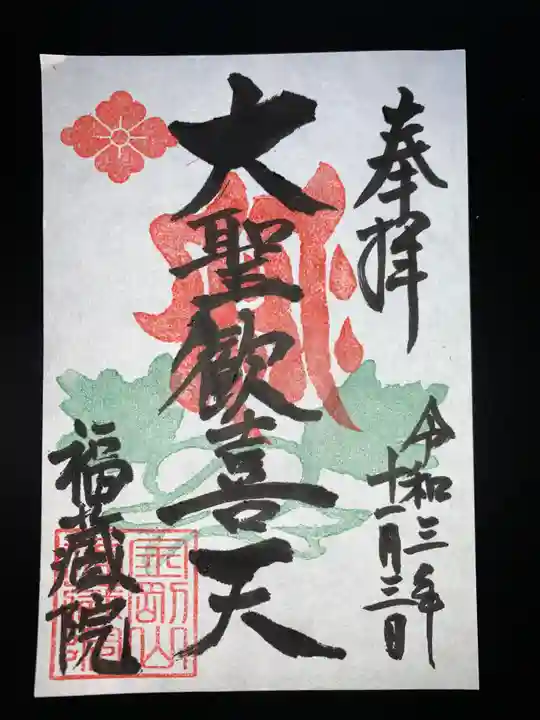 奉拝
令和三年
十一月三日
大聖歓喜天
福蔵院
金剛山